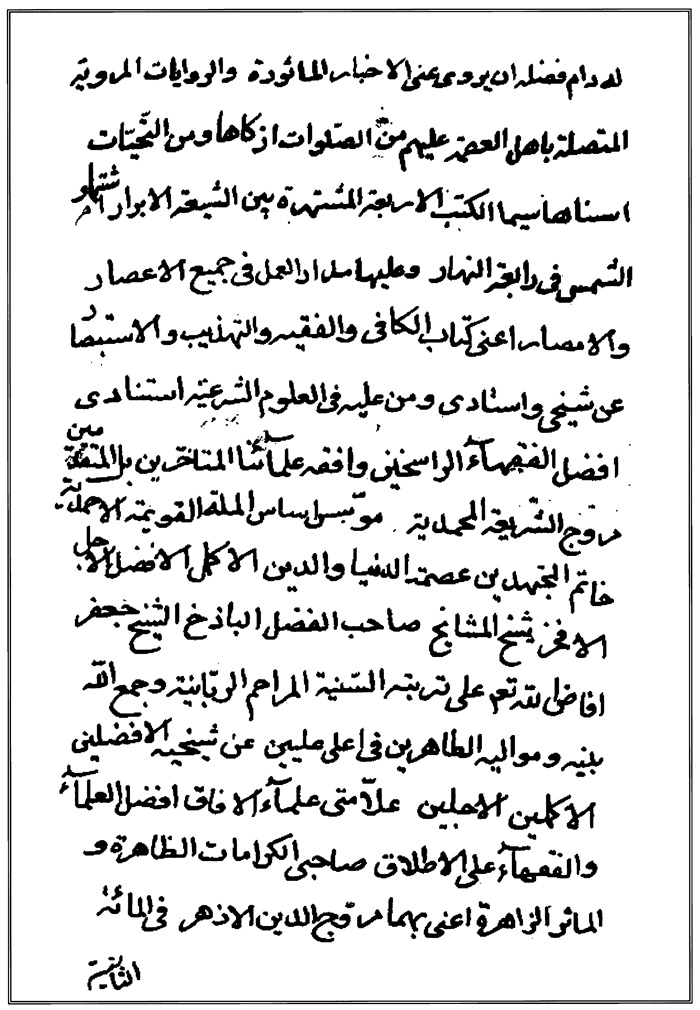 له دام فضله ان يروى عنى الاخبار الماثورة والروايات المروية
المتصلة باهل العصمة عليهم من الصلوات ازكاها ومن التحيّات
اسناها سيما الكتب الاربعة المشتهرة بين الشيعة الابرار اشتهار
الشمس فى رابعة النهار وعليها مدار العمل فى جميع الاعصار
والامصار اعنى كتاب الكافى والفقيه والتهذيب والاستبصار
عن شيخى واستادى ومن عليه فى العلوم الشرعيّة استنادى
افضل الفقهآء الراسخين وافقه علمآئنا المتاخّرين بل المتقدمين
مروّج الشريعة المحمدية موسّس اساس الملة القويمة الاحمدية
خاتم المجتهدين عصمة الدنيا والدين الاكمل الافضل الاجل
الافخر شيخ المشايخ صاحب الفضل الباذخ الشيخ جعفر
افاض الله تعم على تربته السّنية المراحم الربّانية وجمع الله
بنيه ومواليه الطاهرين فى اعلى عليين عن شيخيه الافضلين
الاكملين الاجلين علّامتى علمآء الافاق افضل العلمآء
والفقهآء على الاطلاق صاحبى الكرامات الظاهرة و
الماثر الزاهرة اعنى بهما مروّج الدين الازهر فى المائة
الثانية